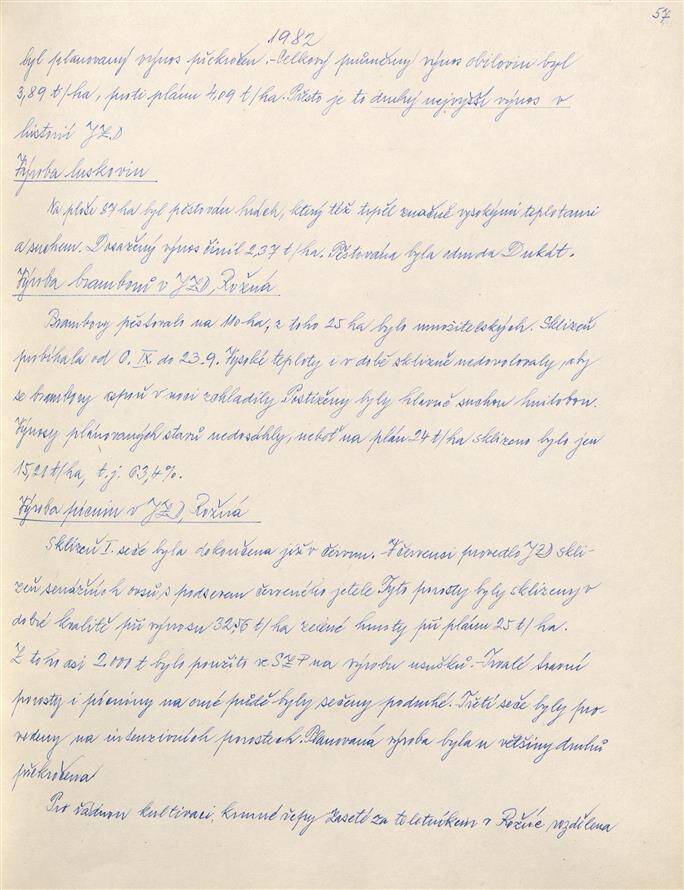 57
1982
byl plánovaný výnos překročen. - Celkový průměrný výnos obilovin byl
3,89 t/ha, proti plánu 4,09 t/ha. Přesto je to druhý nejvyšší výnos v
historii JZD
Výroba luskovin
Na ploše 87 ha byl pěstován hrách, který též trpěl značně vysokými teplotami
a suchem. Dosažený výnos činil 2,37 t/ha. Pěstována byla odrůda Dukát.
Výroba bramborů v JZD, Rožná
Brambory pěstovalo na 110 ha, z toho 25 ha bylo množitelských. Sklizeň
probíhala od 6. IX. do 23.9. Vysoké teploty i v době sklizně nedovolovaly, aby
se brambory aspoň v noci zchladily. Postiženy byly hlavně suchou hnilobou.
Výnosy plánovaných stavů nedosáhly, neboť na plán 24 t/ha sklizeno bylo jen
15,21 t/ha, t.j. 63,4%.
Výroba pícnin v JZD, Rožná
Sklizeň I. seče byla dokončena již v červnu. - V červenci provedlo JZD skli-
zeň senážních ovsů s podsevem červeného jetele. Tyto porosty byly sklizeny v
dobré kvalitě při výnosu 32,56 t/ha zelené hmoty při plánu 25 t/ha.
Z toho asi 2.000 t bylo použito ve SZP na výrobu úsušků. - Trvalé travní
porosty i pícniny na orné půdě byly sečeny podruhé. Třetí seče byly pro-
vedeny na intenzivních porostech. Plánovaná výroba byla u většiny druhů
překročena
Pro řádnou kultivaci, krmné řepy zaseté za teletníkem v Rožné, rozdělena